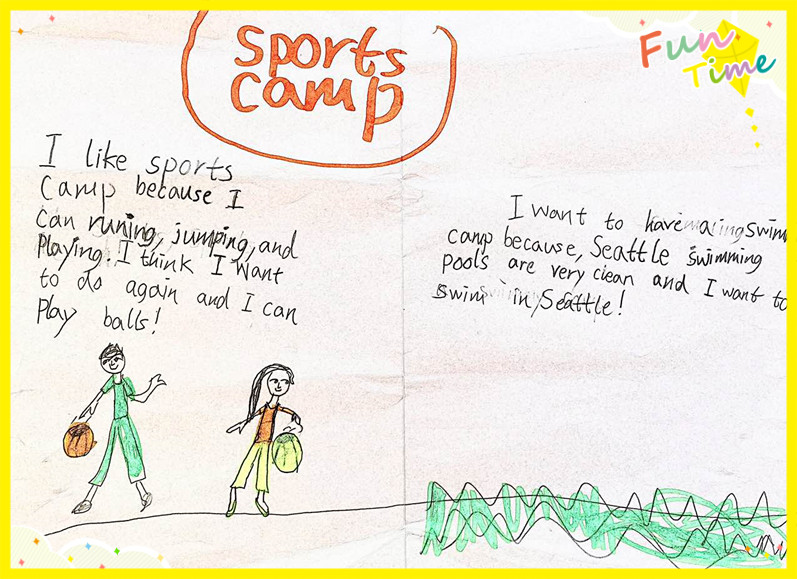 Sports
Camp
Fun
Time
I like sports
Camp because I
can runing, jumping, and
Playing. I think I want
to do again and I can
Play balls!
I want to have swim
camp because, Seattle swimming
pools are very clean and I want to
swim in Seattle!